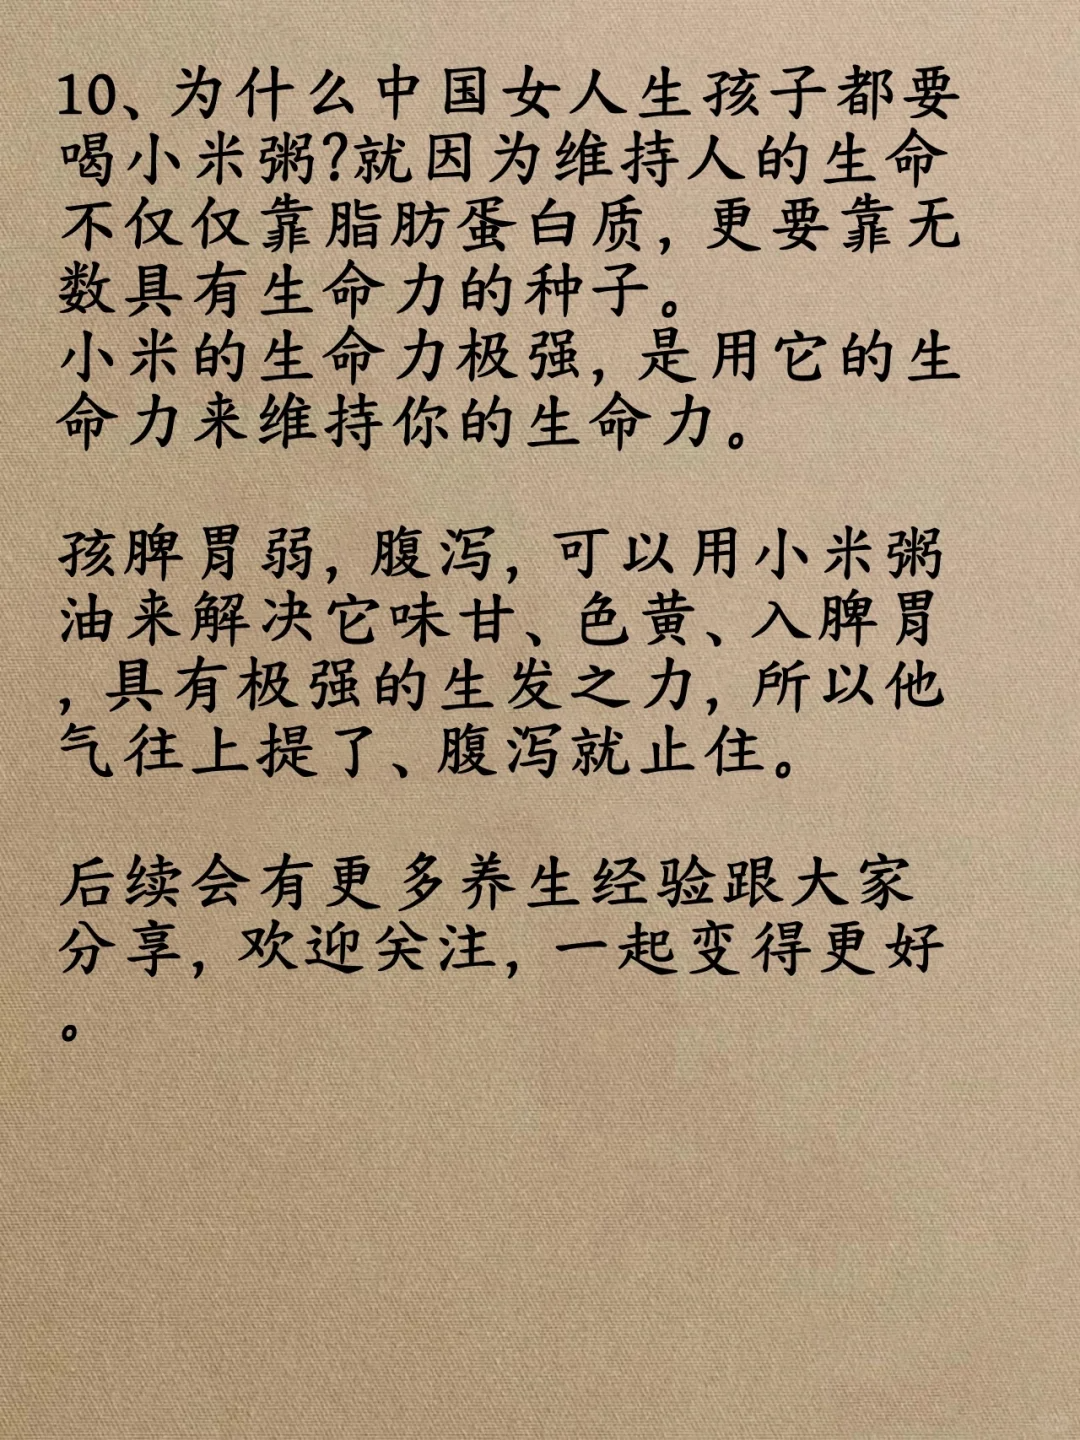 10、为什么中国女人生孩子都要
喝小米粥?就因为维持人的生命
不仅仅靠脂肪蛋白质，更要靠无
数具有生命力的种子。
小米的生命力极强，是用它的生
命力来维持你的生命力。
孩脾胃弱，腹泻，可以用小米粥
油来解决它味甘、色黄、入脾胃
，具有极强的生发之力，所以他
气往上提了、腹泻就止住。
后续会有更多养生经验跟大家
分享，欢迎关注，一起变得更好
。